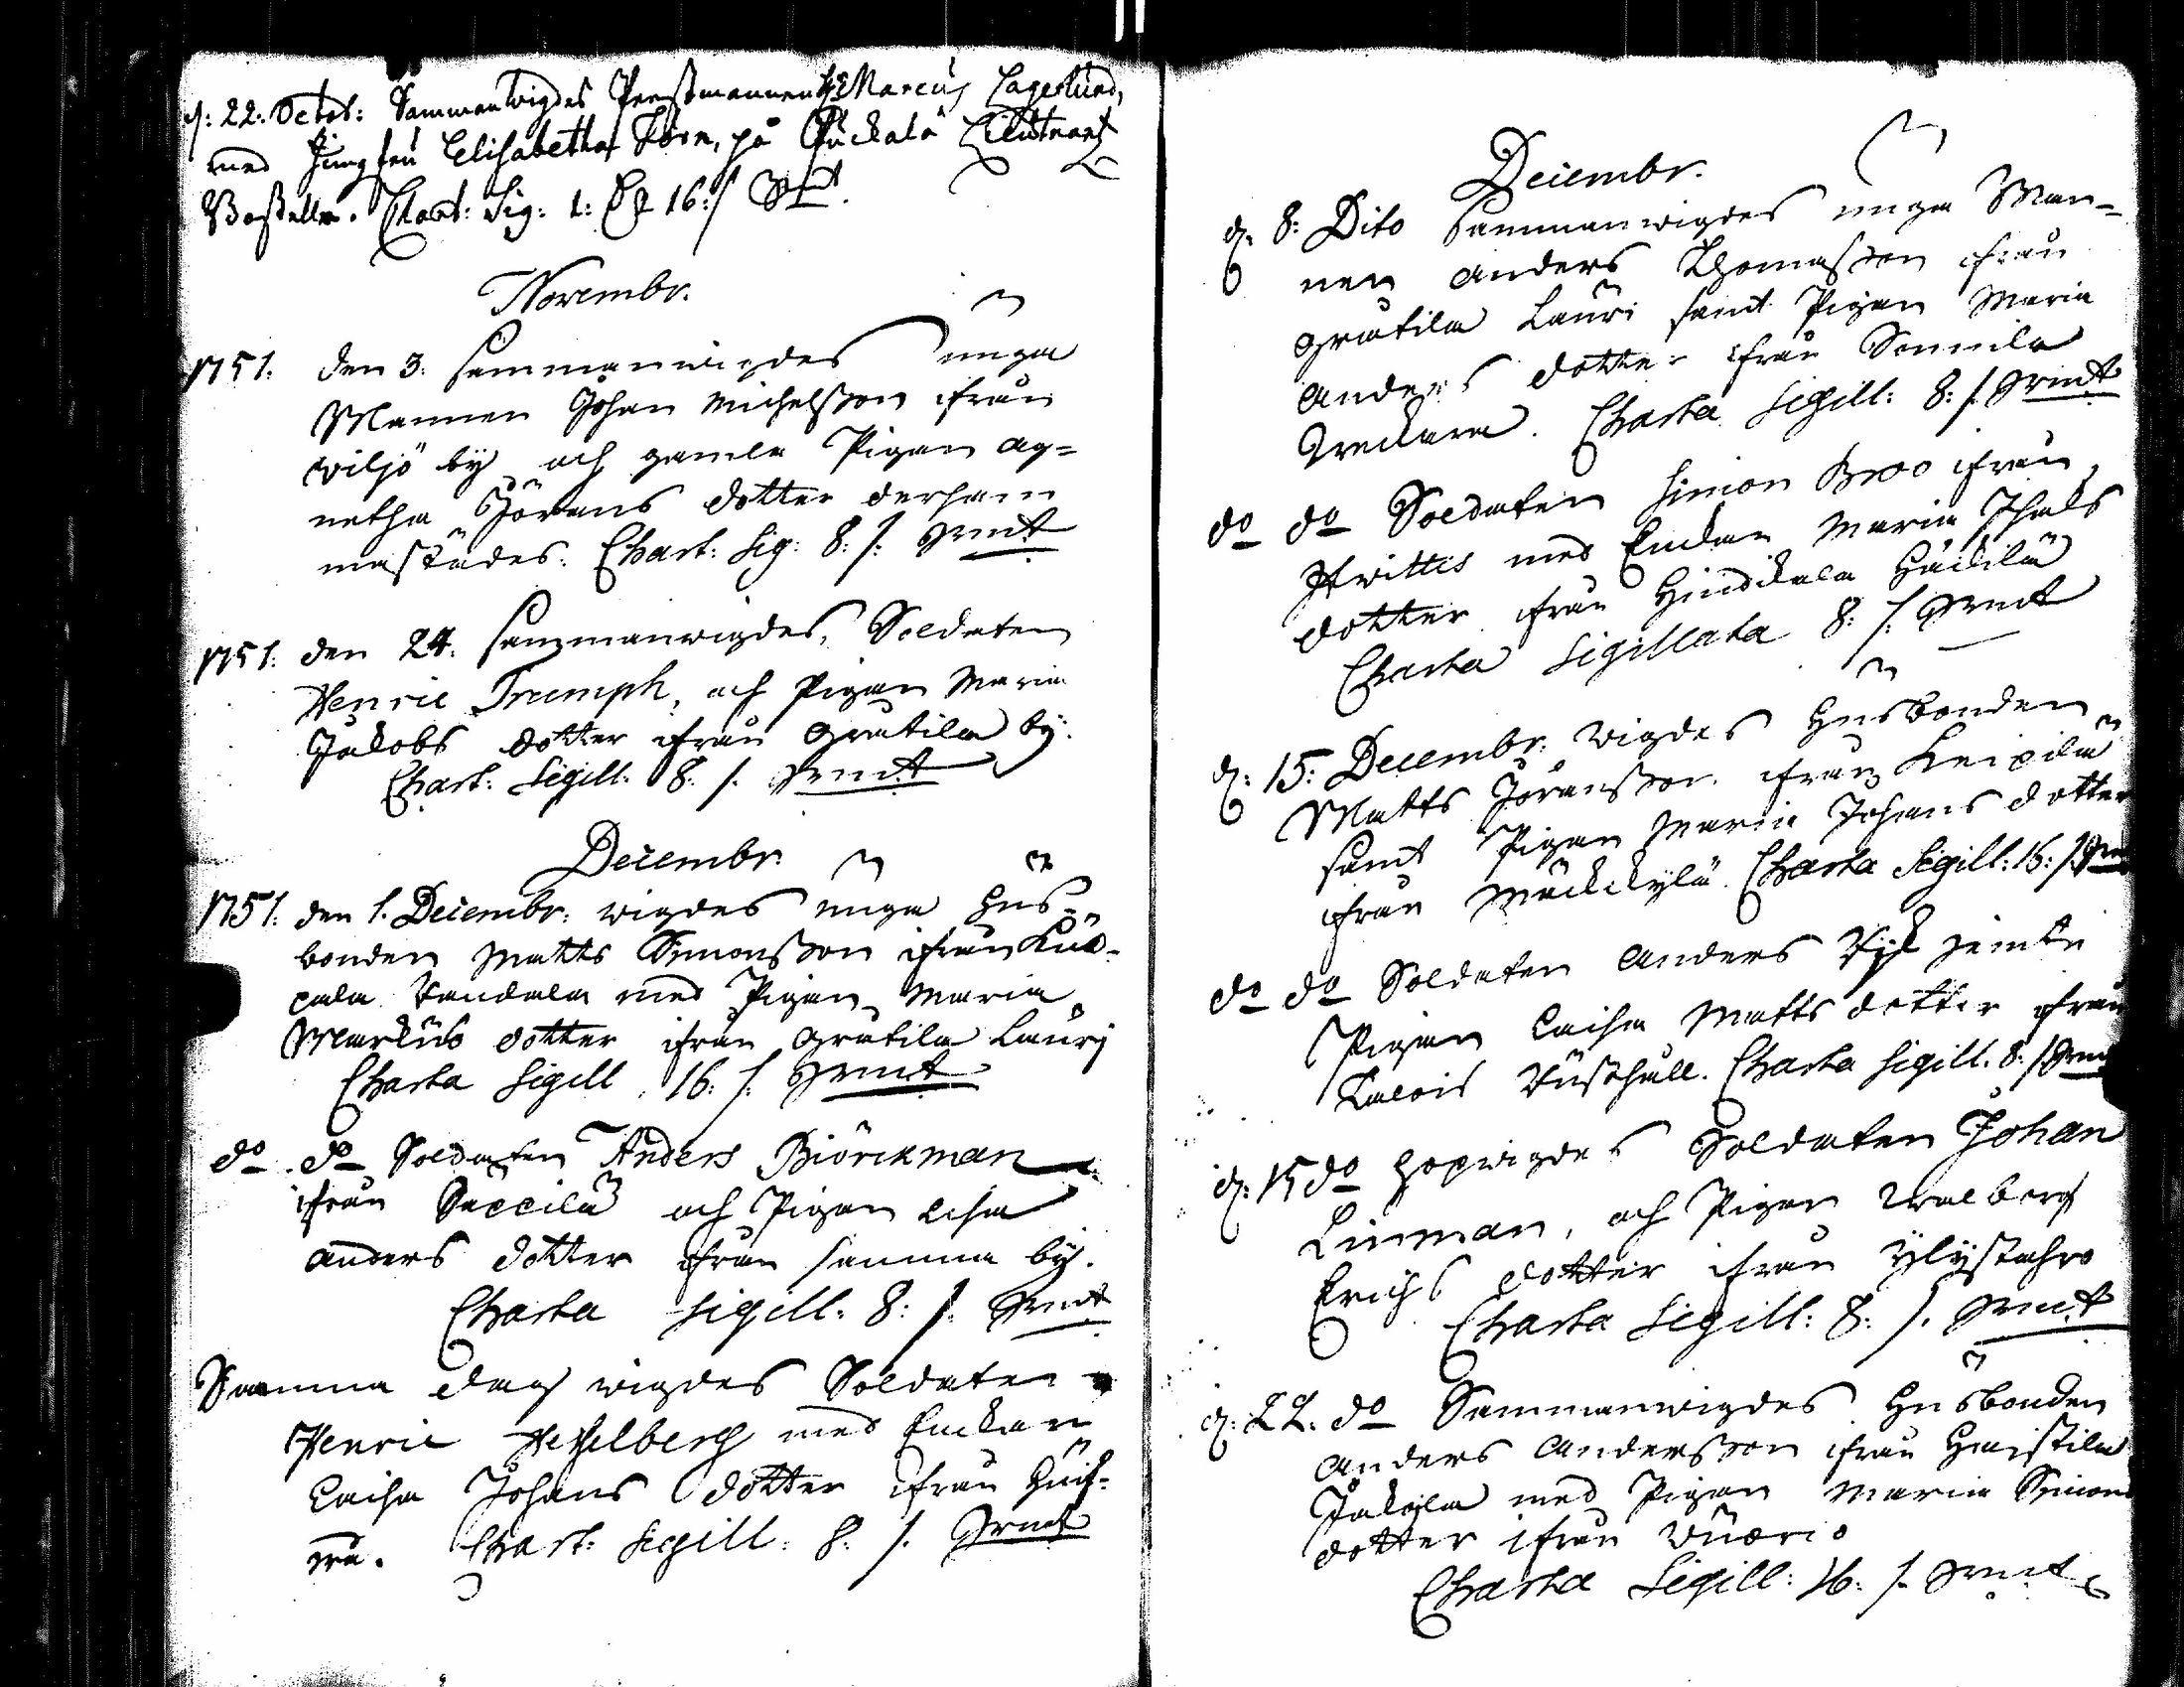 d: 22. Octob: Sammanwigdes Prestmannen H: Marcus Lagerlund,
med Jungfru Elisabetha Törn, på Puckala Lieutnants
Boställe. Chart: Sig: 1: 16: / Srmt.
Novembr.
1751: den 3. sammanwigdes unga
Mannen Johan Michelsson ifrån
wiljo by och gamla Pigan Ag=
netha Jörans dotter der sam
mastädes. Chart: Sig: 8: /: Srmt
1751: den 24. sammanwigdes, Soldaten
Henric Trumph, och Pigan Maria
Jakobs dotter ifrån Gratila by.
Chart: Sigill: 8: /. Srmt
Decembr.
1751: den 1. Decembr: wigdes unga hus=
bonden Matts Simonsson ifrån
med Pigan Maria
Markus dotter ifrån Gratila Lauri
Charta Sigill. 16: /. Srmt
do do Soldaten Anders Biörckman
ifrån Säppilä och Pigan Lisa
Anders dotter ifrån samma by.
Charta Sigill: 8: /. Srmt
Samma dag wigdes Soldaten
Henric Hesselberg med Enckan
Caisa Johans dotter ifrån
Chart: Sigill: 8: /. Srmt
Decembr.
d. 8: Dito sammanwigdes unga Man=
nen Anders Thomasson ifrån
Gratila Lauri samt Pigan Maria
Anders dotter ifrån Sonnila
Charta Sigill: 8: /. Srmt
do do Soldaten Simon Broo ifrån
Hwittis med Enckan Maria
dotter ifrån Hindickala Häickilä
Charta Sigillata 8: /: Srmt
d: 15: Decembr: wigdes Husbonden
Matts Jöransson ifrån Leipilä
samt Pigan Maria Johans dotter
ifrån Mackkylä. Charta Sigill: 16: /. Srmt
do do Soldaten Anders jemte
Pigan Caisa Matts dotter ifrån
Rusthåll. Charta Sigill. 8: /. Srmt
d: 15 do hopwigdes Soldaten Johan
Linman, och Pigan Walborg
Erichs dotter ifrån Ylistahro
Charta Sigill: 8: /. Srmt
d: 22. do Sammanwigdes Husbonden
Anders Andersson ifrån
med Pigan Maria Simons
dotter ifrån
Charta Sigill: 16: /. Srmt